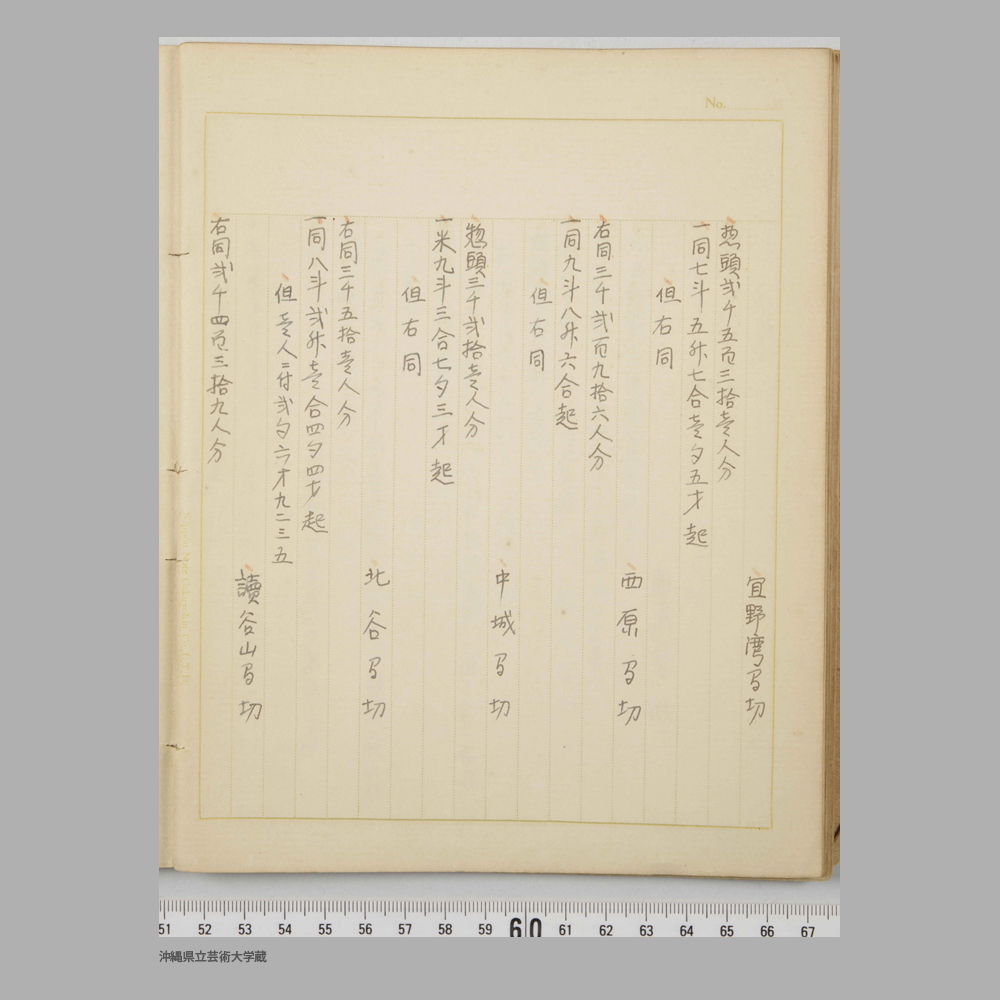 No.
宜野湾間切
惣頭弐千五百三拾壱人分
一同七斗五升七合壱夕五才起
但右同
西原間切
右同三千弐百九拾六人分
一同九斗八升六合起
但右同
中城間切
惣頭三千弐拾壱人分
一米九斗三合七夕三才起
但右同
北谷間切
右同三千五拾壱人分
一同八斗弐升壱合四夕四才起
但壱人ニ付弐夕六才九二三五
讀谷山間切
右同弐千四百三拾九人分
51 52 53 54 55 56 57 58 59 60 61 62 63 64 65 66 67
沖縄県立芸術大学蔵